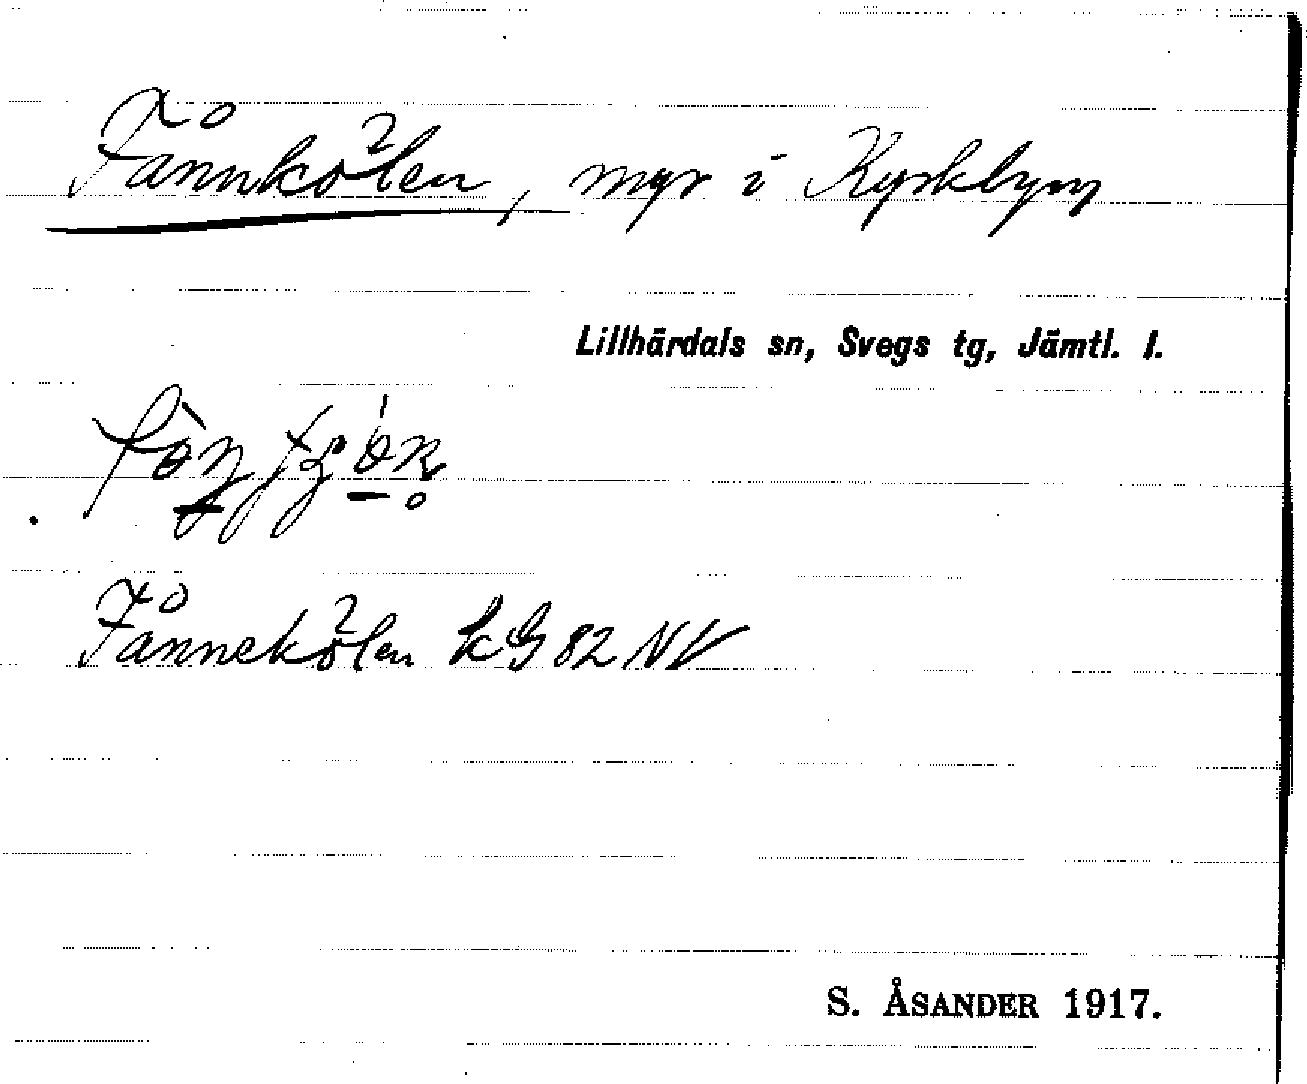 Fånnkölen, myr i Kyrkbyn
Lillhärdals sn, Svegs tg, Jämtl. l.
Fånnekölen kG 82 NV
S. ÅSANDER 1917.